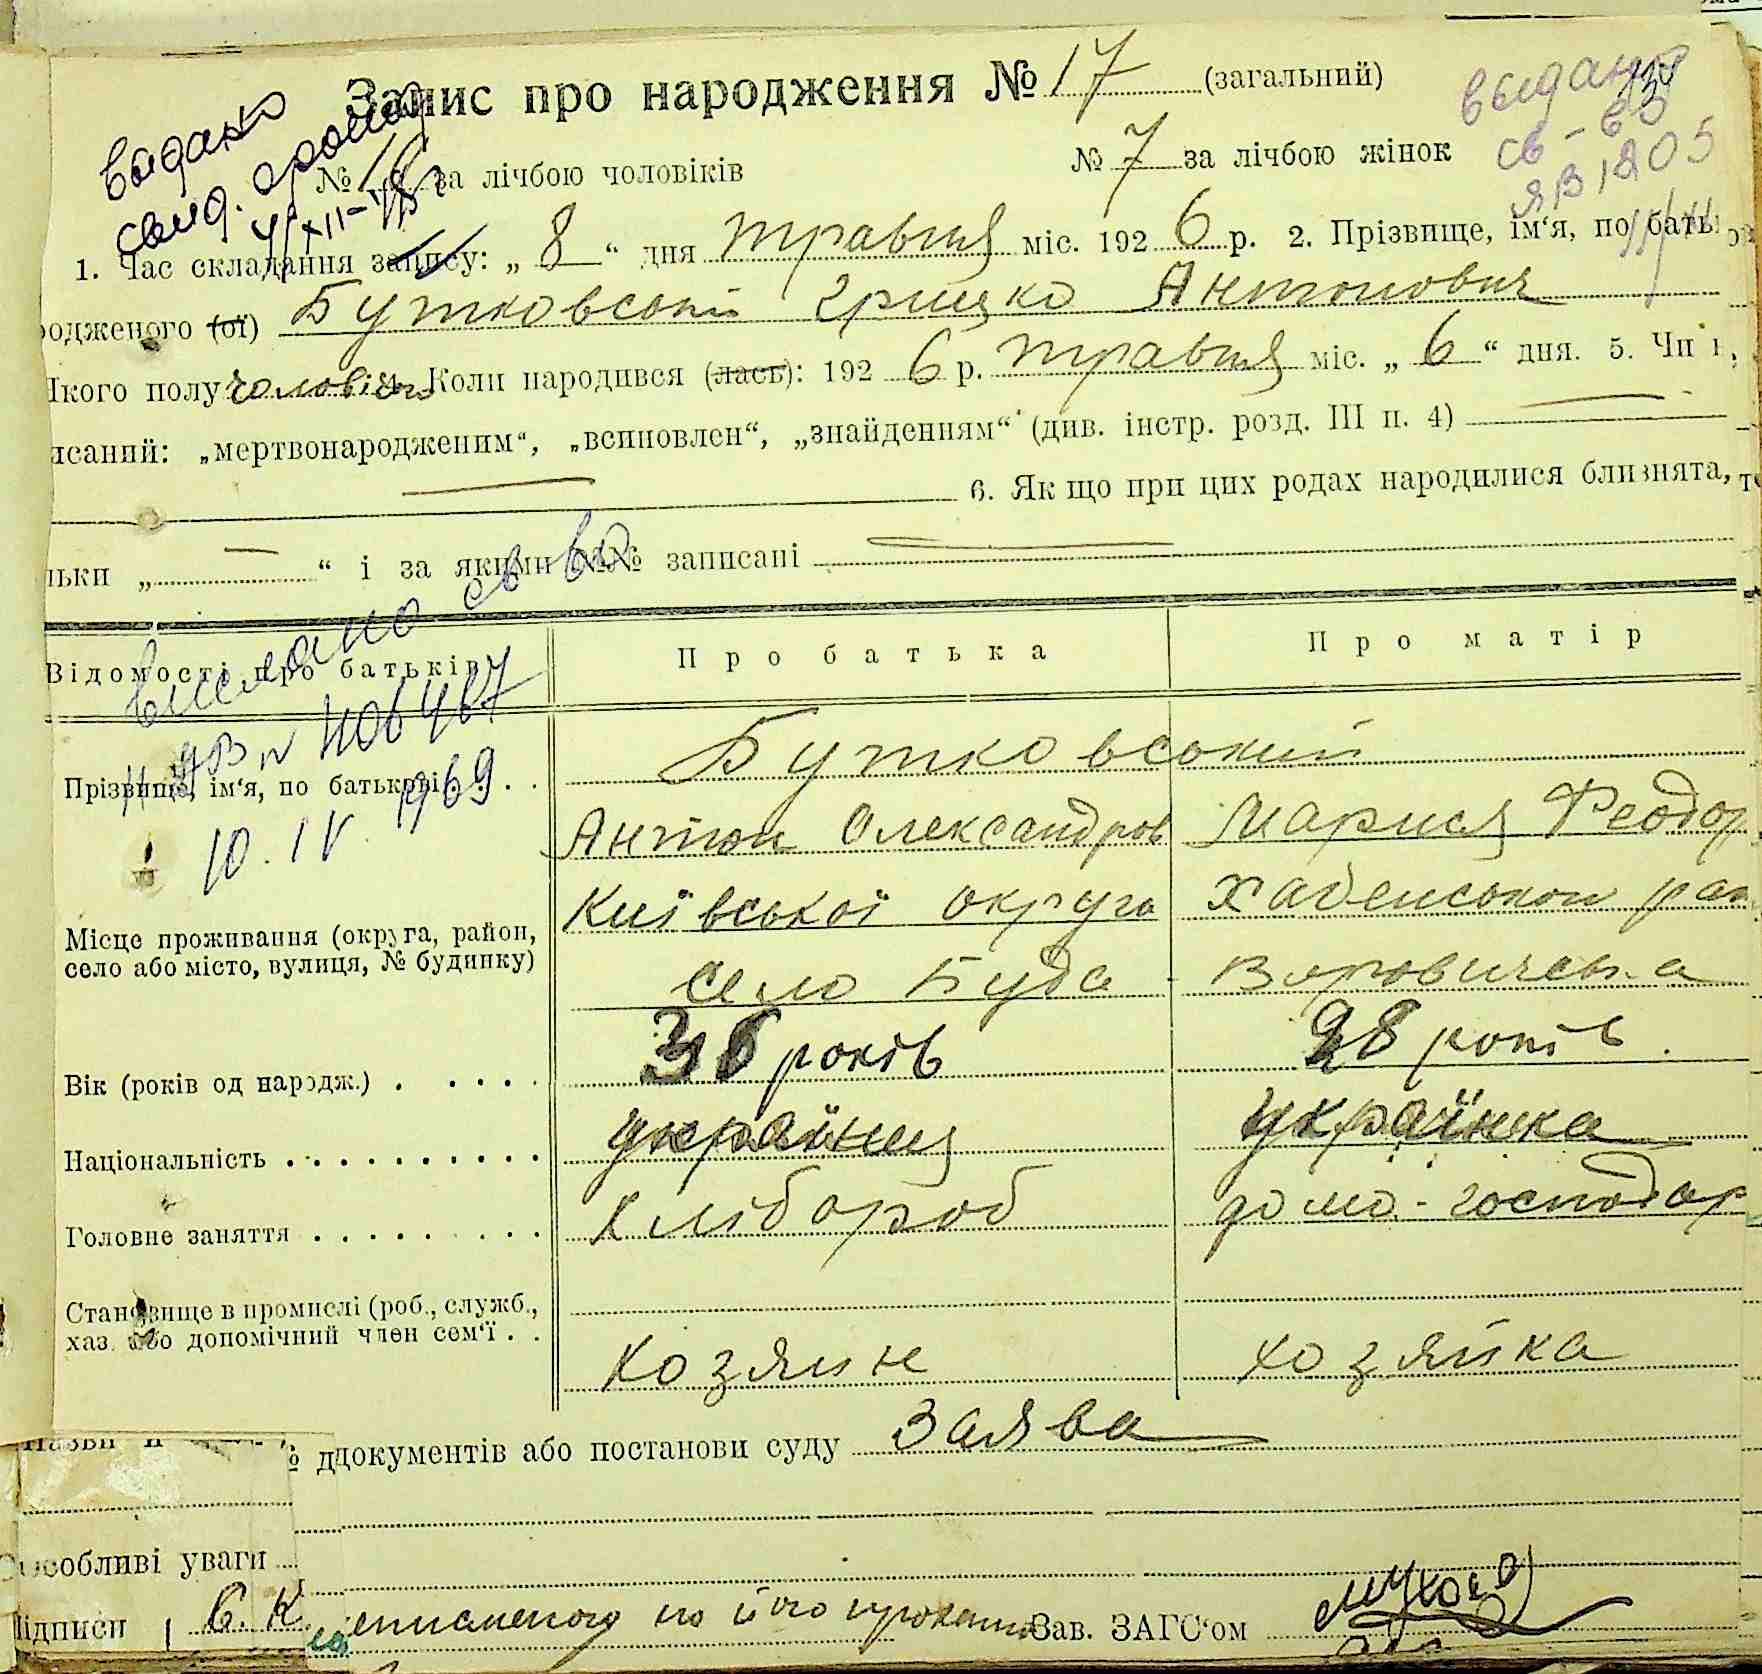 Запис про народження № 17 (загальний)
выдано
свид. 
№ 10 за лічбою чоловіків
№ 7 за лічбою жінок
выдано
св-во
ЯВ 1205
1. Час складання запису: „ 8 “ дня травня міс. 192 6 р. 2. Прізвище, ім‘я, по бать
родженого (ої) Бутковський Грицко Антонович
Якого полу чоловіч. Коли народився (лась): 192 6 р. травня міс. „ 6 “ дня. 5. Чи
исаний: „мертвонародженим“, „всиновлен“, „знайденням“ (див. інстр. розд. III п. 4)
6. Як що при цих родах народилися близнята, то
льки „ “ і за якими №№ записані
Відомості про батьків
Про батька
Про матір
св во
10. IV. 1969
Прізвище, ім‘я, по батькові . .
Бутковський
Антон Олександров
Мария Феодор
Місце проживання (округа, район,
село або місто, вулиця, № будинку)
Київської округа
Хабенського рай
село Буда - Воровичська
Вік (років од народж.) . . . . .
36 років
28 років.
Національність . . . . . . . . . .
українец
українка
Головне заняття . . . . . . . . .
хлібороб
домо-господар
Становище в промислі (роб., служб.,
хаз. або допомічний член сем‘ї . .
хозяин
хозяйка
Назви й
документів або постанови суду заява
Особливі уваги
Підписи
неписменого по його проханню
Зав. ЗАГС‘ом